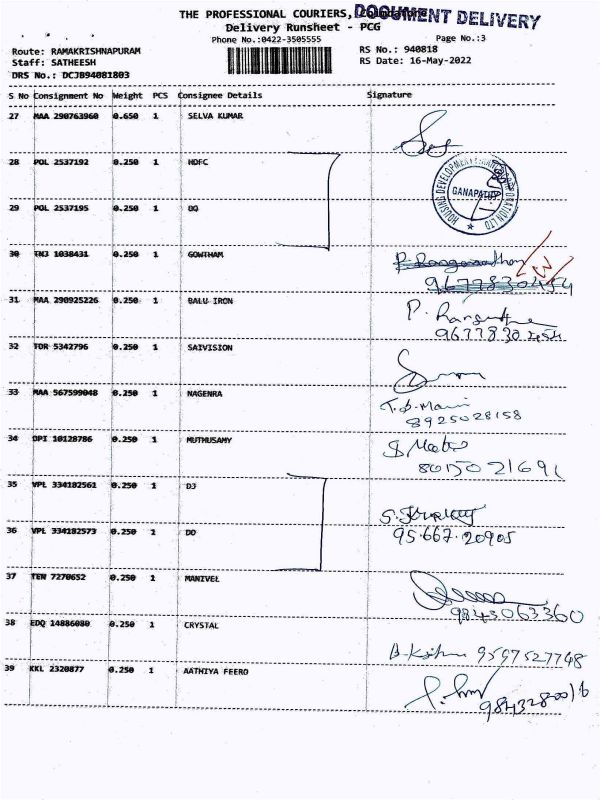 THE PROFESSIONAL COURIERS, Coimbatore
DOCUMENT DELIVERY
Delivery Runsheet - PCG
Phone No.:0422-3505555
Page No.:3
Route: RAMAKRISHNAPURAM
RS No.: 940818
Staff: SATHEESH
RS Date: 16-May-2022
DRS No.: DCJB94081803
S No Consignment No Weight PCS Consignee Details Signature
27 MAA 290763960 0.650 1 SELVA KUMAR
28 POL 2537192 0.250 1 HDFC
HOUSING DEVELOPMENT FINANCE CORPORATION LTD
GANAPATHY
29 POL 2537195 0.250 1
30 TNJ 1038431 0.250 1 GOWTHAM
9677830454
31 MAA 290925226 0.250 1 BALU IRON
P.
9677830454
32 TDR 5342796 0.250 1 SAIVISION
33 MAA 567599048 0.250 1 NAGENRA
T.S.Mani
8925028158
34 OPI 10128786 0.250 1 MUTHUSAMY
8015021691
35 VPL 334182561 0.250 1 DJ
S.
36 VPL 334182573 0.250 1 DD
95.667.20905
37 TEN 7270652 0.250 1 MANIVEL
9843063360
38 EDQ 14886080 0.250 1 CRYSTAL
9597527748
39 KKL 2320877 0.250 1 AATHIYA FEERO
9843280016